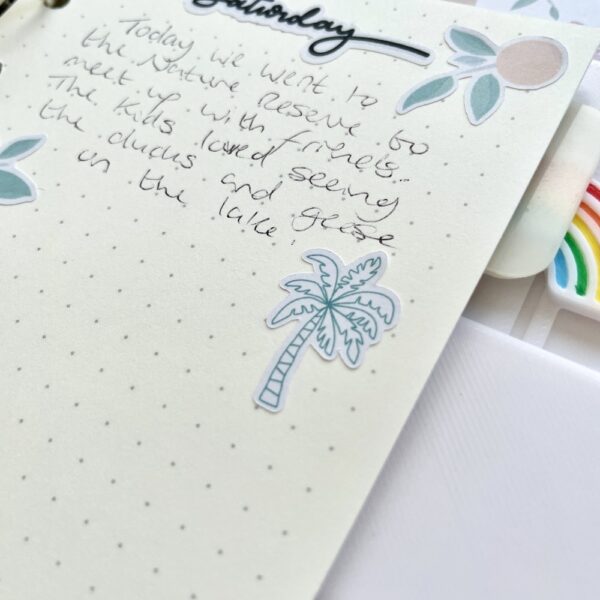 Saturday
Today we went to
the Nature Reserve to
meet up with friends.
The kids loved seeing
the ducks and geese
on the lake.